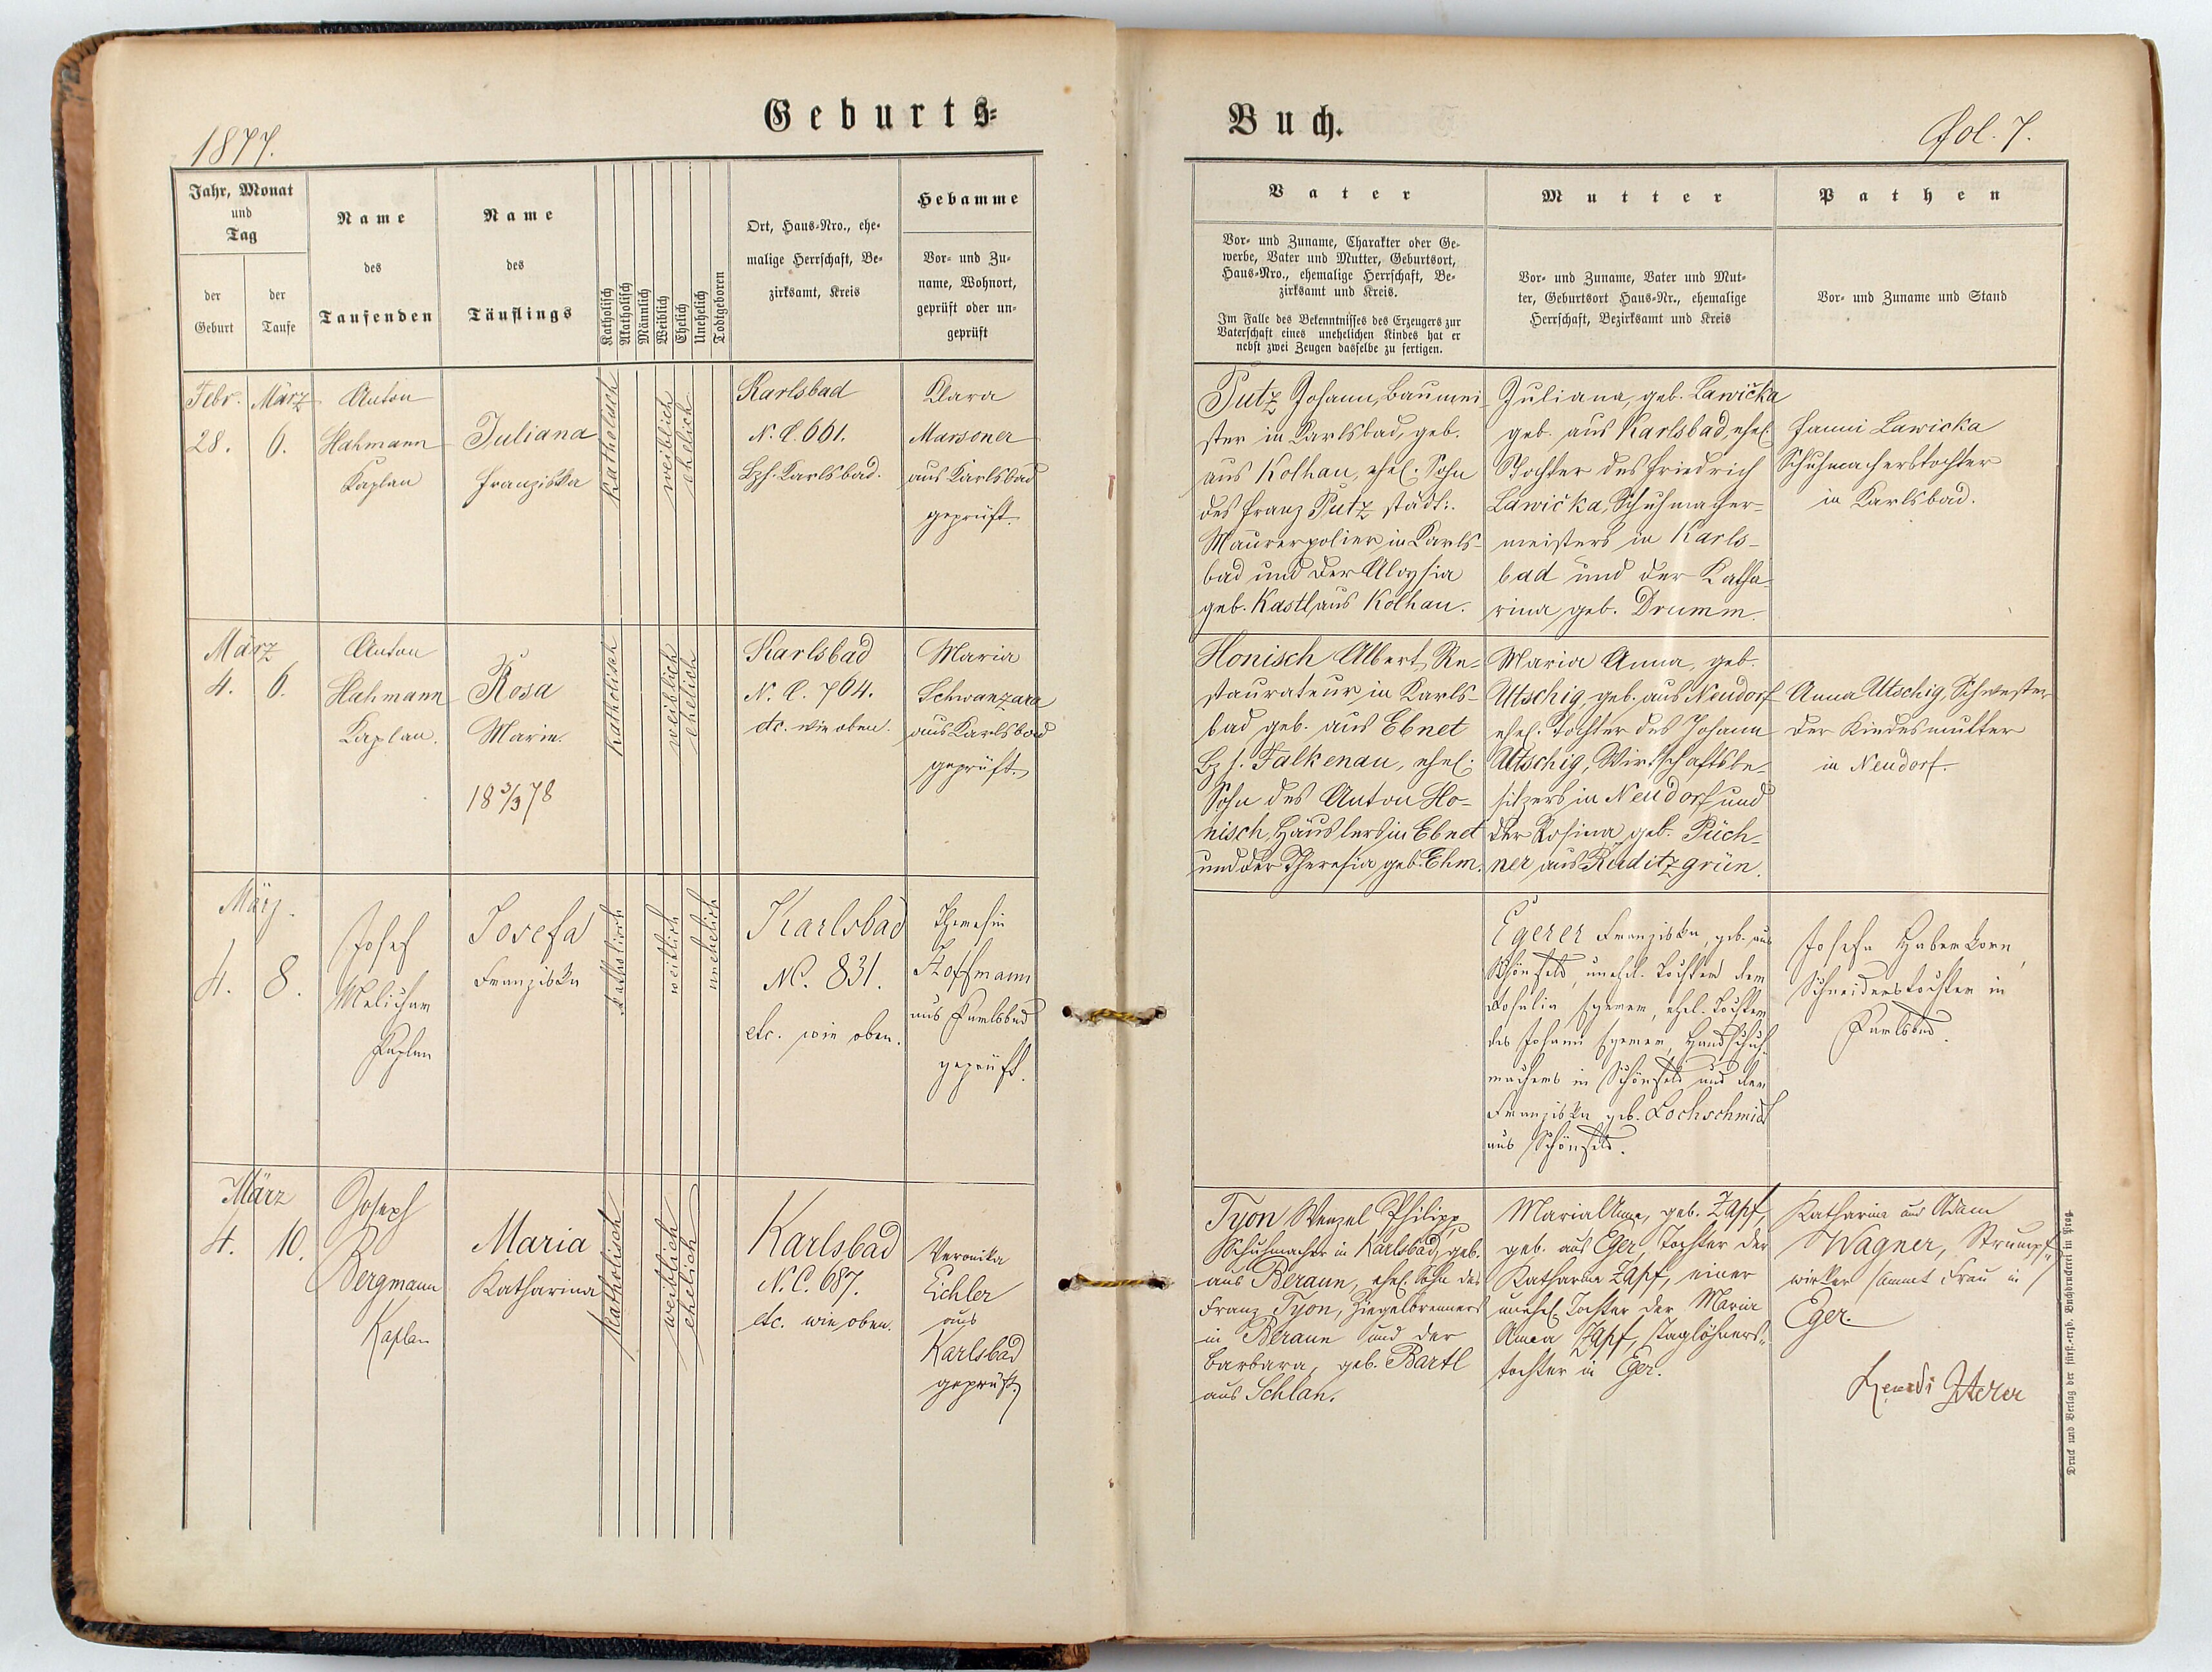 Geburts=
Buch.
1877.
Fol. 7.
Jahr, Monat
und
Tag
der
Geburt
der
Taufe
Name
des
Taufenden
Name
des
Täuflings
Katholisch
Akatholisch
Männlich
Weiblich
Ehelich
Unehelich
Todtgeboren
Ort, Haus-Nro., ehe-
malige Herrschaft, Be-
zirksamt, Kreis
Hebamme
Vor- und Zu-
name, Wohnort,
geprüft oder un-
geprüft
Vater
Vor- und Zuname, Charakter oder Ge-
werbe, Vater und Mutter, Geburtsort,
Haus-Nro., ehemalige Herrschaft, Be-
zirksamt und Kreis.
Im Falle des Bekenntnisses des Erzeugers zur
Vaterschaft eines unehelichen Kindes hat er
nebst zwei Zeugen dasselbe zu fertigen.
Mutter
Vor- und Zuname, Vater und Mut-
ter, Geburtsort Haus-Nr., ehemalige
Herrschaft, Bezirksamt und Kreis
Pathen
Vor- und Zuname und Stand
Febr.
28.
März
6.
Anton
Hahmann
Kaplan
Juliana
Franziska
katholisch
weiblich
ehelich
Karlsbad
N. C. 661.
Bzh. Karlsbad.
Clara
Marsoner
aus Karlsbad
geprüft.
Putz Johann, Baumei-
ster in Karlsbad, geb.
aus Kolhau, ehel. Sohn
des Franz Putz städt:
Maurerpolier in Karls-
bad und der Aloysia
geb. Kastl aus Kolhau.
Juliana, geb. Lawička
geb. aus Karlsbad, ehel.
Tochter des Friedrich
Lawička, Schuhmacher-
meisters in Karls-
bad und der Katha-
rina geb. Drumm.
Fanni Lawicka
Schuhmacherstochter
in Karlsbad.
März
4.
6.
Anton
Hahmann
Kaplan.
Rosa
Marie.
18 3/3 78
katholisch
weiblich
ehelich
Karlsbad
N. C. 764.
etc. wie oben.
Maria
Schwanzara
aus Karlsbad
geprüft.
Honisch Albert, Re-
staurateur in Karls-
bad geb. aus Ebnet
Bzh. Falkenau, ehel.
Sohn des Anton Ho-
nisch, Häuslers in Ebnet
und der Theresia geb. Ehm.
Maria Anna, geb.
Utschig, geb. aus Neudorf
ehel. Tochter des Johann
Utschig, Wirtschaftsbe-
sitzers in Neudorf und
der Rosina geb. Püch-
ner aus Ruditzgrün.
Anna Utschig, Schwester
der Kindesmutter
in Neudorf.
März
4.
8.
Josef
Melichar
Kaplan
Josefa
Franziska
katholisch
weiblich
unehelich
Karlsbad
NC. 831.
etc. wie oben.
Theresia
Hoffmann
aus Karlsbad
geprüft.
Egerer Franziska, geb. aus
Schönfeld, unehel. Tochter der
Rosalia Egerer, ehel. Tochter
des Johann Egerer, Handschuh-
machers in Schönfeld und der
Franziska geb. Lochschmidt
aus Schönfeld.
Josefa Haberkorn,
Schneiderstochter in
Karlsbad.
März
4.
10.
Joseph
Bergmann
Kaplan
Maria
Katharina
katholisch
weiblich
ehelich
Karlsbad
N. C. 687.
etc. wie oben.
Veronika
Eichler
aus
Karlsbad
geprüft.
Tyon Wenzel Philipp,
Schuhmacher in Karlsbad, geb.
aus Beraun, ehel. Sohn des
Franz Tyon, Ziegelbrenners
in Beraun und der
Barbara, geb. Bartl
aus Schlan.
Maria Anna, geb. Zapf,
geb. aus Eger, Tochter der
Katharina Zapf, einer
unehel. Tochter der Maria
Anna Zapf, Taglöhners-
tochter in Eger.
Katharina und Adam
Wagner, Strumpf-
wirker sammt Frau in
Eger.
Druck und Verlag der fürst.-erzb. Buchdruckerei in Prag.